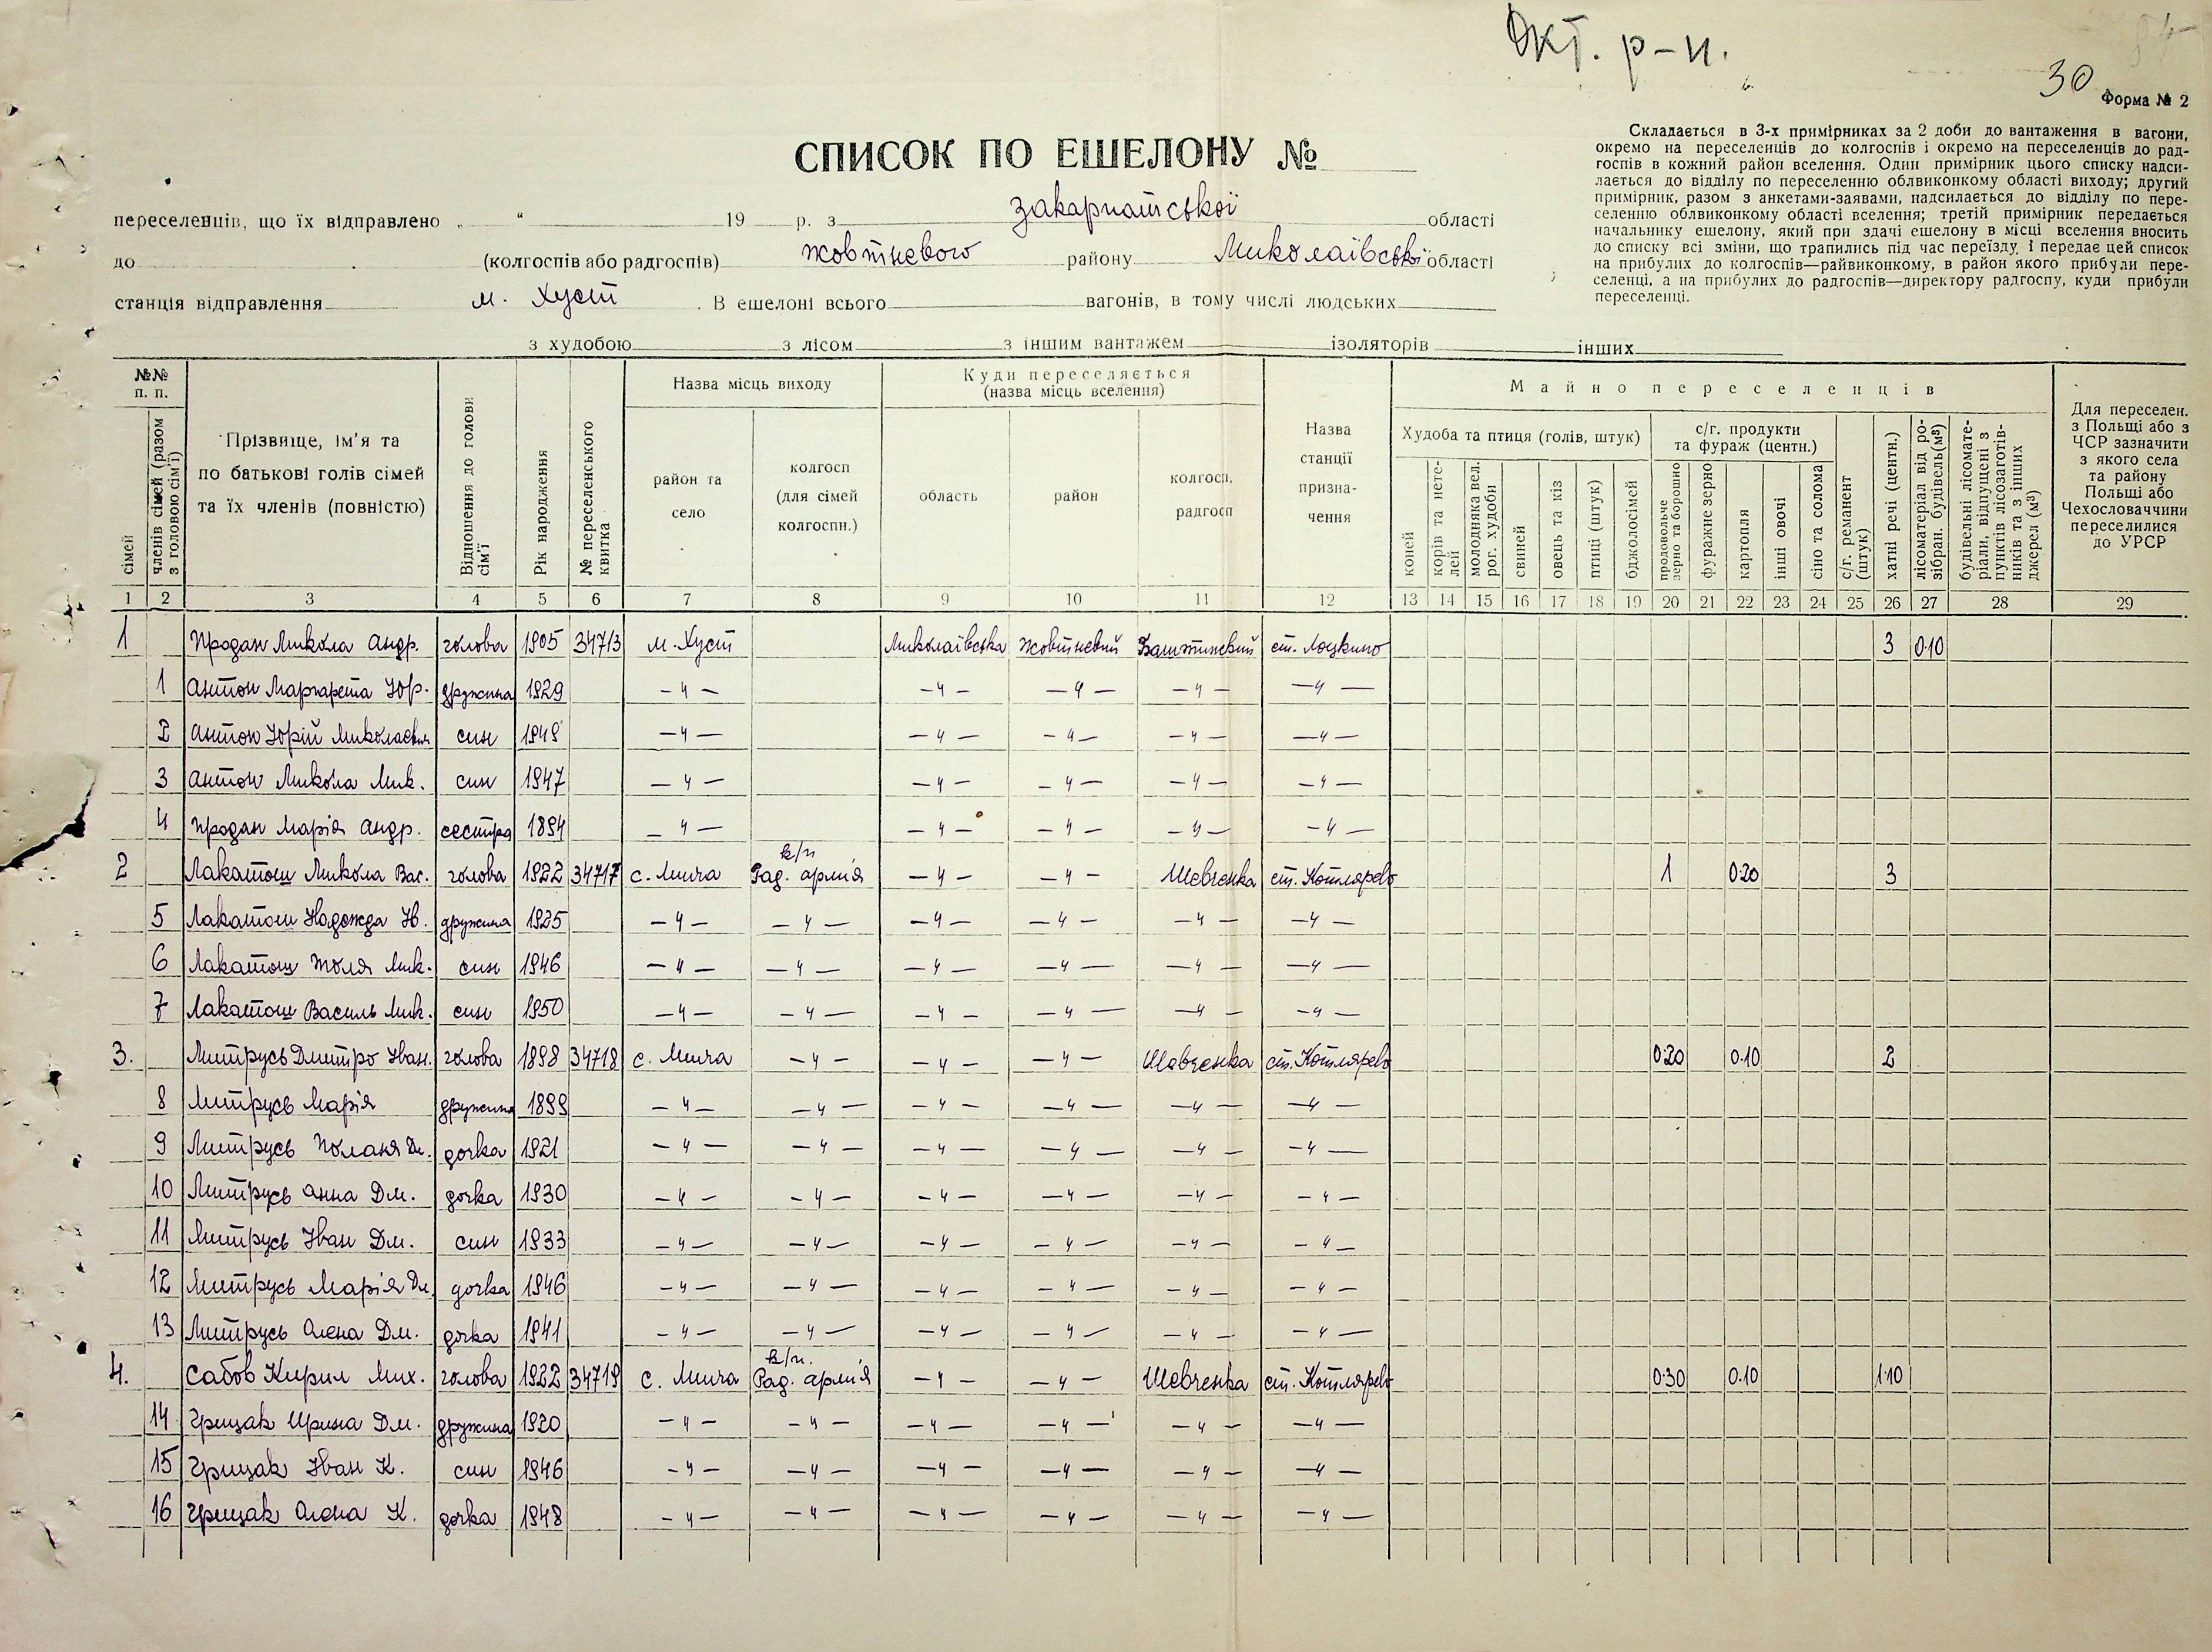 Окт. р-н.
30
Форма № 2
СПИСОК ПО ЕШЕЛОНУ №
Складається в 3-х примірниках за 2 доби до вантаження в вагони,
окремо на переселенців до колгоспів і окремо на переселенців до рад-
госпів в кожний район вселення. Один примірник цього списку надси-
лається до відділу по переселенню облвиконкому області виходу; другий
примірник, разом з анкетами-заявами, надсилається до відділу по пере-
селенню облвиконкому області вселення; третій примірник передається
начальнику ешелону, який при здачі ешелону в місці вселення вносить
до списку всі зміни, що трапились під час переїзду, і передає цей список
на прибулих до колгоспів—райвиконкому, в район якого прибули пере-
селенці, а на прибулих до радгоспів—директору радгоспу, куди прибули
переселенці.
переселенців, що їх відправлено „ “ 19 р. з Закарпатської області
до (колгоспів або радгоспів) Жовтневого району Миколаївської області
станція відправлення м. Хуст. В ешелоні всього вагонів, в тому числі людських
з худобою з лісом з іншим вантажем ізоляторів інших
№№ п. п.
сімей
членів сімей (разом з головою сім'ї)
Прізвище, ім'я та
по батькові голів сімей
та їх членів (повністю)
Відношення до голови сім'ї
Рік народження
№ переселенського квитка
Назва місць виходу
район та село
колгосп (для сімей колгоспн.)
Куди переселяється
(назва місць вселення)
область
район
колгосп, радгосп
Назва станції призна-чення
Майно переселенців
Худоба та птиця (голів, штук)
коней
корів та нете-лей
молодняка вел. рог. худоби
свиней
овець та кіз
птиці (штук)
бджолосімей
с/г. продукти та фураж (центн.)
продовольче зерно та борошно
фуражне зерно
картопля
інші овочі
сіно та солома
с/г. реманент (штук)
хатні речі (центн.)
лісоматеріал від ро-зібран. будівель (м³)
будівельні лісомате-ріали, відпущені з пунктів лісозаготів-ників та з інших джерел (м³)
Для переселен. з Польщі або з ЧСР зазначити з якого села та району Польщі або Чехословаччини переселилися до УРСР
1 2 3 4 5 6 7 8 9 10 11 12 13 14 15 16 17 18 19 20 21 22 23 24 25 26 27 28 29
1 Продан Микола Андр. голова 1905 34713 м. Хуст Миколаївська Жовтневий Баштинский ст. Лоцкино 3 0·10
1 Антон Маргарета Юр. дружина 1929 — " — — " — — " — — " — — " —
2 Антон Юрій Миколаєвич син 1949 — " — — " — — " — — " — — " —
3 Антон Микола Мик. син 1947 — " — — " — — " — — " — — " —
4 Продан Марія Андр. сестра 1894 — " — — " — — " — — " — — " —
2 Лакатош Микола Вас. голова 1922 34717 с. Мича к/г Рад. армія — " — — " — Шевченка ст. Котлярево 1 0·20 3
5 Лакатош Надежда Ю. дружина 1925 — " — — " — — " — — " — — " — — " —
6 Лакатош Жоля Мик. син 1946 — " — — " — — " — — " — — " — — " —
7 Лакатош Василь Мик. син 1950 — " — — " — — " — — " — — " — — " —
3. Митрусь Дмитро Іван. голова 1898 34718 с. Мича — " — — " — — " — Шевченка ст. Котлярево 0·20 0·10 2
8 Митрусь Марія дружина 1899 — " — — " — — " — — " — — " — — " —
9 Митрусь Полания Дм. дочка 1921 — " — — " — — " — — " — — " — — " —
10 Митрусь Анна Дм. дочка 1930 — " — — " — — " — — " — — " — — " —
11 Митрусь Іван Дм. син 1933 — " — — " — — " — — " — — " — — " —
12 Митрусь Марія Дм. дочка 1946 — " — — " — — " — — " — — " — — " —
13 Митрусь Олена Дм. дочка 1941 — " — — " — — " — — " — — " — — " —
4. Сабов Кирил Мих. голова 1922 34719 с. Мича к/г. Рад. армія — " — — " — Шевченка ст. Котлярево 0·30 0·10 1·10
14 Грицак Ирина Дм. дружина 1920 — " — — " — — " — — " — — " — — " —
15 Грицак Іван К. син 1946 — " — — " — — " — — " — — " — — " —
16 Грицак Олена К. дочка 1948 — " — — " — — " — — " — — " — — " —